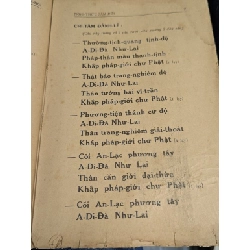 — Thường-tịch-quang tịnh-độ
A-Di-Đà Như-Lai
Pháp-thân mầu thanh-tịnh
Khắp pháp-giới chư Phật
— Thật báo trang-nghiêm độ
A-Di-Đà Như-Lai
Thân tướng hải vi-trần
Khắp pháp-giới chư Phật
— Phương-tiện thánh cư độ
A-Di-Đà Như-Lai
Thân trang-nghiêm giải-thoát
Khắp pháp-giới chư Phật
— Cõi An-Lạc phương tây
A-Di-Đà Như-Lai
Thân căn giới đại-thừa
Khắp pháp-giới chư Phật
— Cõi An-Lạc phương tây
A-Di-Đà Như-Lai